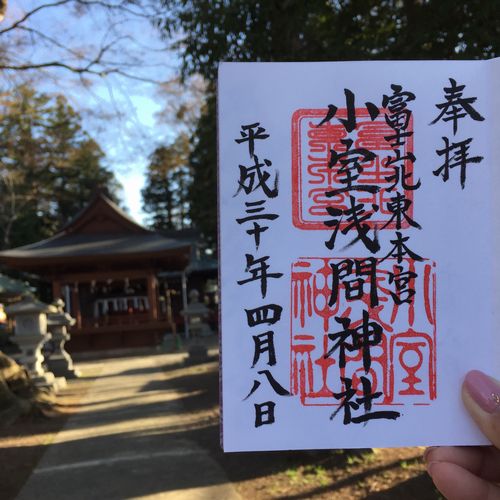 奉拝
富士山北東本宮
小室浅間神社
平成三十年四月八日
小室
浅間
神社